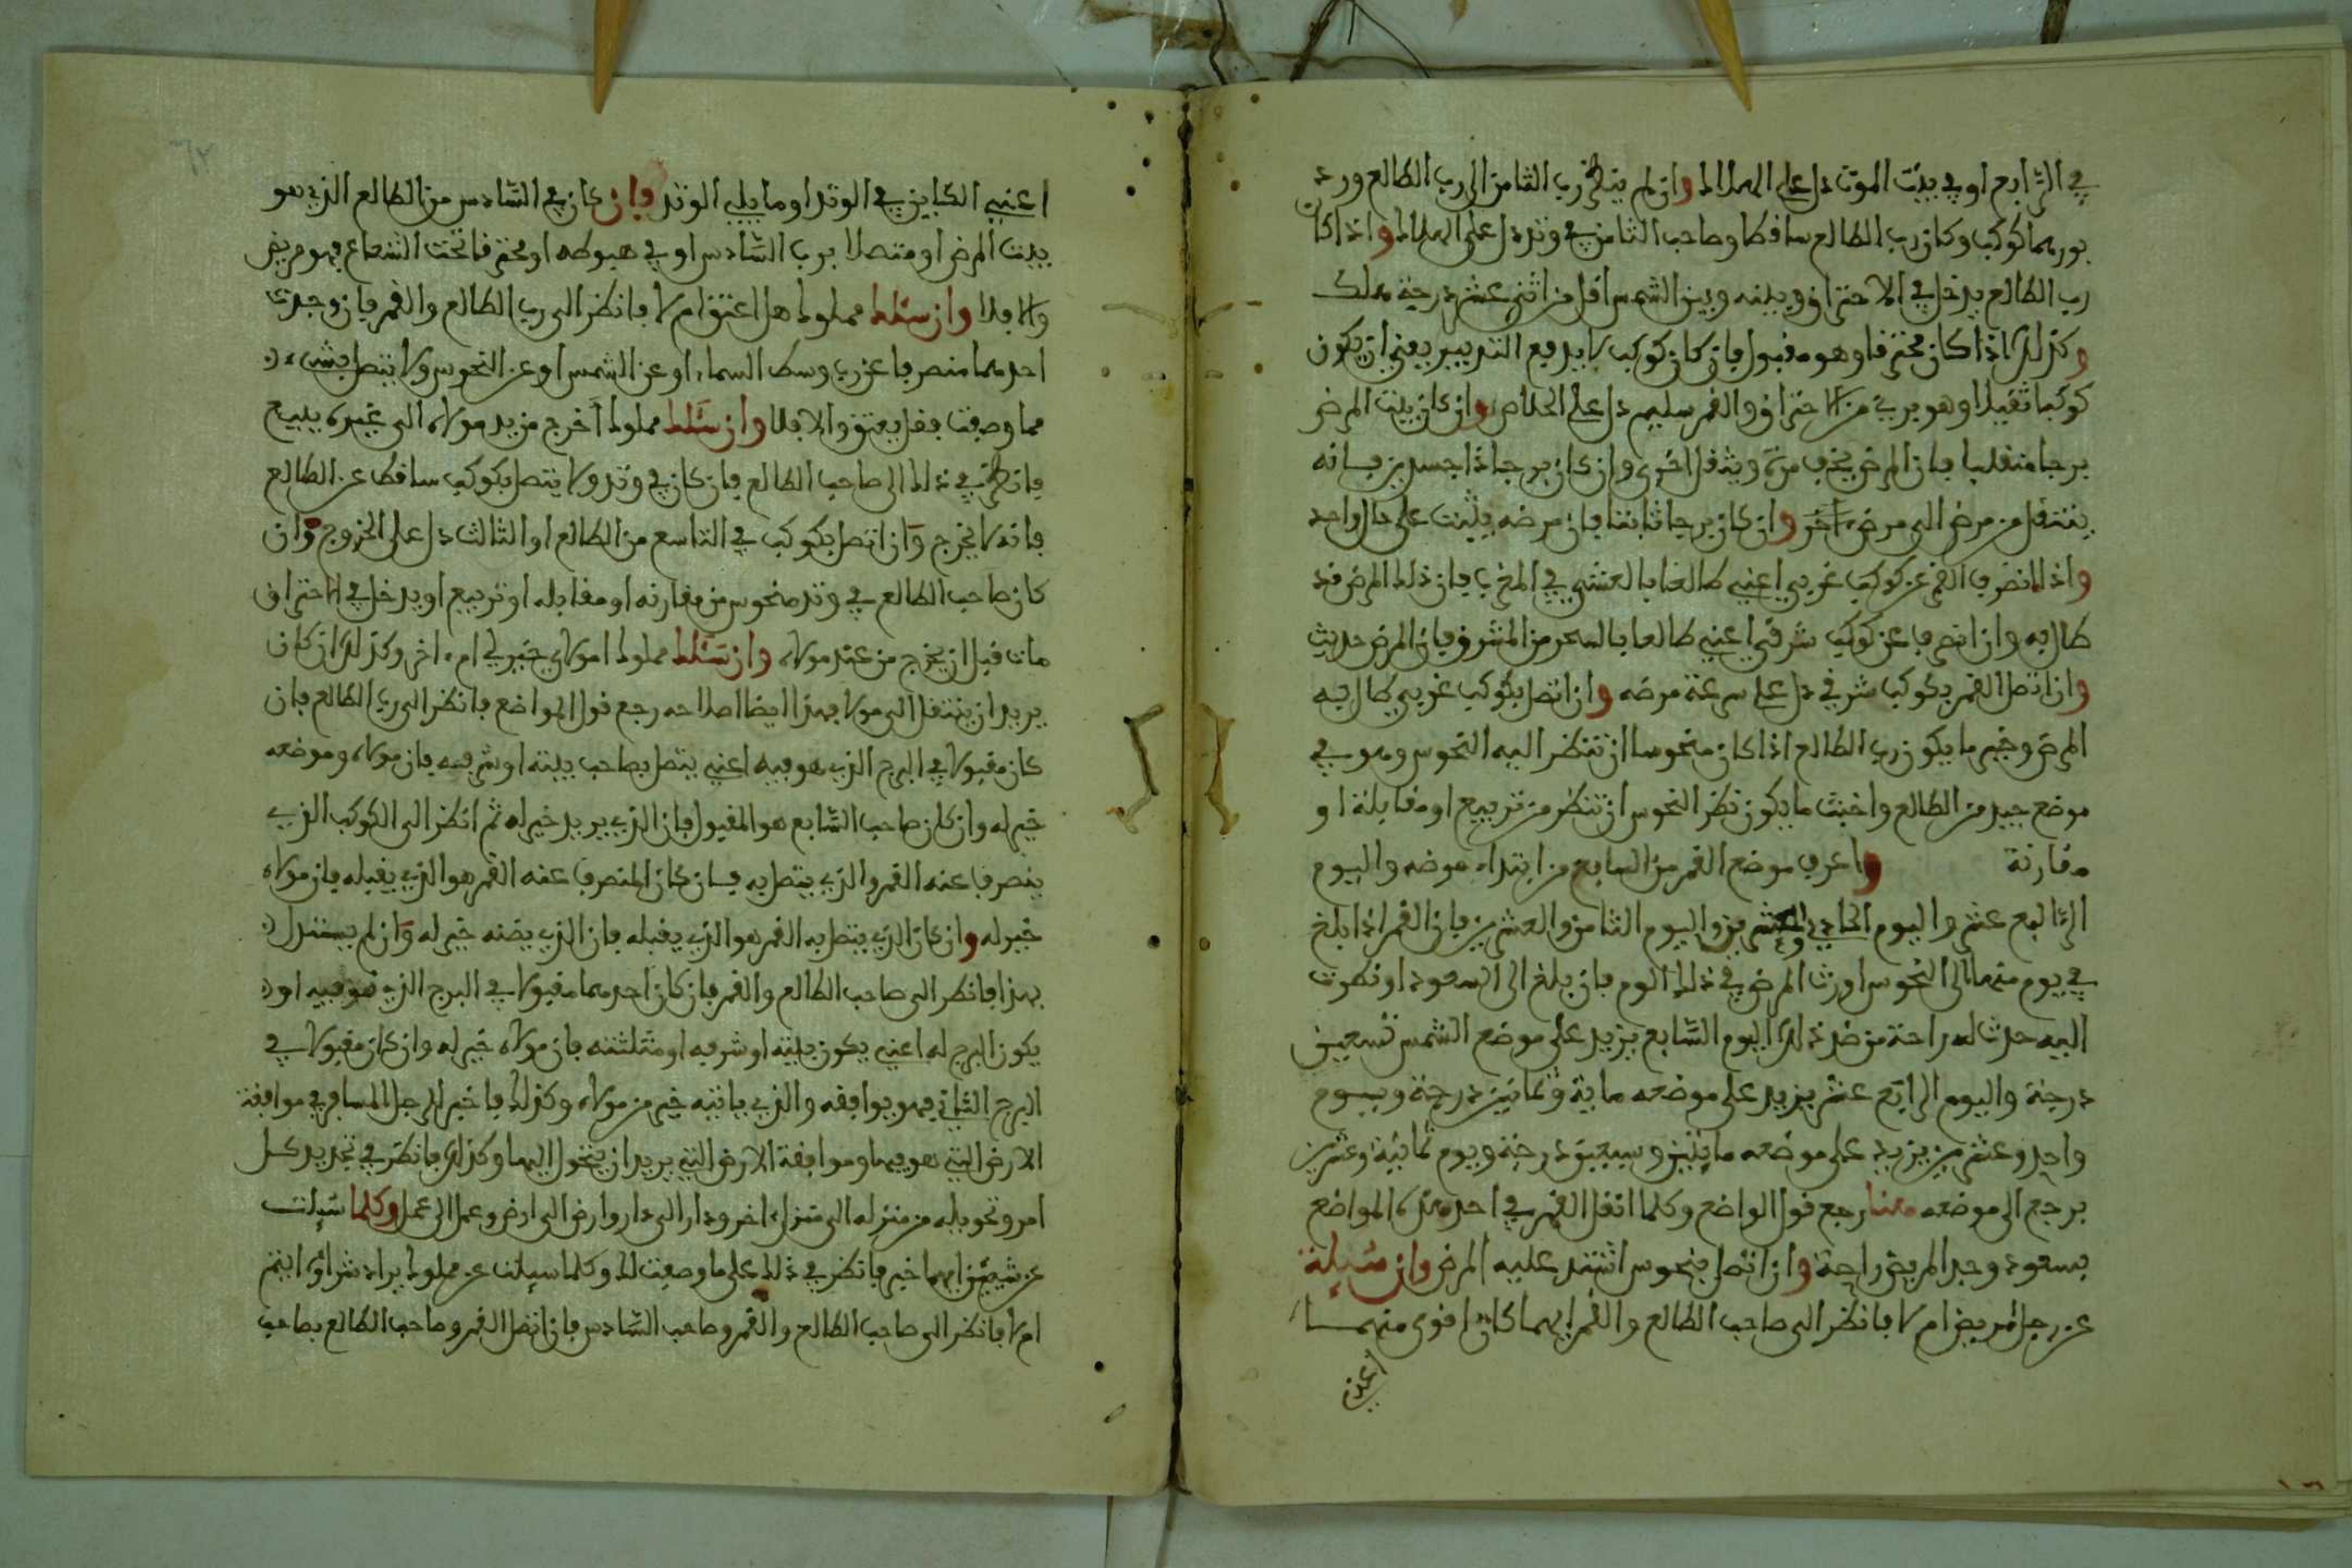 في الرابع او في بيت الموت دل على الهلاك وان لم ينظر رب الثامن الى رب الطالع ورد
نورهما كوكب وكان رب الطالع ساقطا وصاحب الثامن في وتد دل على الهلاك واذا كان
رب الطالع يدخل في الاحتراق وبينه وبين الشمس اقل من اثنى عشر درجة هلك
وكذلك اذا كان محترقا وهو مقبول فان كان كوكب لا يدفع التدبير يعني ان يكون
كوكبا ثقيلا وهو بريء من الاحتراق والقمر سليم دل على الخلاص وان كان بيت المرض
برجا منقلبا فان المرض يخف مرة ويثقل اخرى وان كان برجا ذا جسدين فانه
ينتقل من مرض الى مرض اخر وان كان برجا ثابتا فان مرضه يثبت على حال واحد
واذا انصرف القمر عن كوكب غربي اعني طالعا بالعشي في المغرب فان ذلك المرض قد
طال به وان انصرف عن كوكب شرقي اعني طالعا بالسحر من المشرق فان المرض حديث
وان اتصل القمر بكوكب شرقي دل على سرعة مرضه وان اتصل بكوكب غربي طال به
المرض وخير ما يكون رب الطالع اذا كان منحوسا ان تنظر اليه النحوس وهو في
موضع جيد من الطالع واخبث ما يكون نظر النحوس ان تنظر من تربيع او مقابلة او
مقارنة واعرف موضع القمر من السابع من ابتداء مرضه واليوم
الرابع عشر واليوم الحادي والعشرين واليوم الثامن والعشرين فان القمر اذا بلغ
في يوم منها الى النحوس اورث المرض في ذلك اليوم فان بلغ الى السعود او نظرت
اليه حدث له راحة من ضر ذلك اليوم السابع يزيد على موضع الشمس تسعين
درجة واليوم الرابع عشر يزيد على موضعه ماية وثمانين درجة ويوم
واحد وعشرين يزيد على موضعه مايتين وسبعين درجة ويوم ثمانية وعشرين
يرجع الى موضعه معنا رجع قول الواضع وكلما اتصل القمر في احد هذه المواضع
بسعود وجد المريض راحة وان اتصل بنحوس اشتد عليه المرض وان سيلة
عن رجل مريض ام لا فانظر الى صاحب الطالع والقمر ايهما كان اقوى منهما
اعني
اعني الكاين في الوتد او ما يلي الوتد فان كان في السادس من الطالع الذي هو
بيت المرض او متصلا برب السادس او في هبوطه او محترقا تحت الشعاع فهو مريض
والا فلا وان سئلك مملوك هل اعتق ام لا فانظر الى رب الطالع والقمر فان وجدت
احدهما منصرفا عن رب وسط السماء او عن الشمس او عن النحوس ولا يتصل بشيء
مما وصفت فقل يعتق والا فلا وان سئلك مملوك اخرج من يد مولاه الى غيره ببيع
فانظر في ذلك الى صاحب الطالع فان كان في وتد ولا يتصل بكوكب ساقط عن الطالع
فانه لا يخرج وان اتصل بكوكب في التاسع من الطالع او الثالث دل على الخروج وان
كان صاحب الطالع في وتد منحوس من مقارنه او مقابله او تربيع او يدخل في الاحتراق
مات قبل ان يخرج من عند مولاه وان سئلك مملوك امولاي خير لي ام اخر وكذلك ان كان
يريد ان ينتقل الى مولا فهذا ايضا اصلاحه رجع قول الواضع فانظر الى رب الطالع فان
كان مقبولا في البرج الذي هو فيه اعني يتصل بصاحب بيته او شرفه فان مولاه وموضعه
خير له وان كان صاحب السابع هو المقبول فان الذي يريد خير له ثم انظر الى الكوكب الذي
ينصرف عنه القمر والذي يتصل به فان كان المنصرف عنه القمر هو الذي يقبله فان مولاه
خير له وان كان الذي يتصل به القمر هو الذي يقبله فان الذي يضنه خير له وان لم يستدل
بهذا فانظر الى صاحب الطالع والقمر فان كان احدهما مقبولا في البرج الذي هو فيه او
يكون البرج له اعني يكون بيته او شرفه او مثلثته فان مولاه خير له وان كان مقبولا في
البرج الثاني فهو يوافقه والذي ياتيه خير من مولاه وكذلك فاخبر الرجل المسافر في موافقة
الارض التي هو فيها وموافقة الارض التي يريد ان يتحول اليها وكذلك فانظر في تجديد كل
امر وتحويله من منزله الى منزل اخر ودار الى دار وارض الى ارض وعمل الى عمل وكلما سيلت
عن شيئين ايهما خير فانظر في ذلك على ما وصفت لك وكلما سيلت عن مملوك يراد شراؤه ايتم
ام لا فانظر الى صاحب الطالع والقمر وصاحب السادس فان اتصل القمر وصاحب الطالع بصاحب